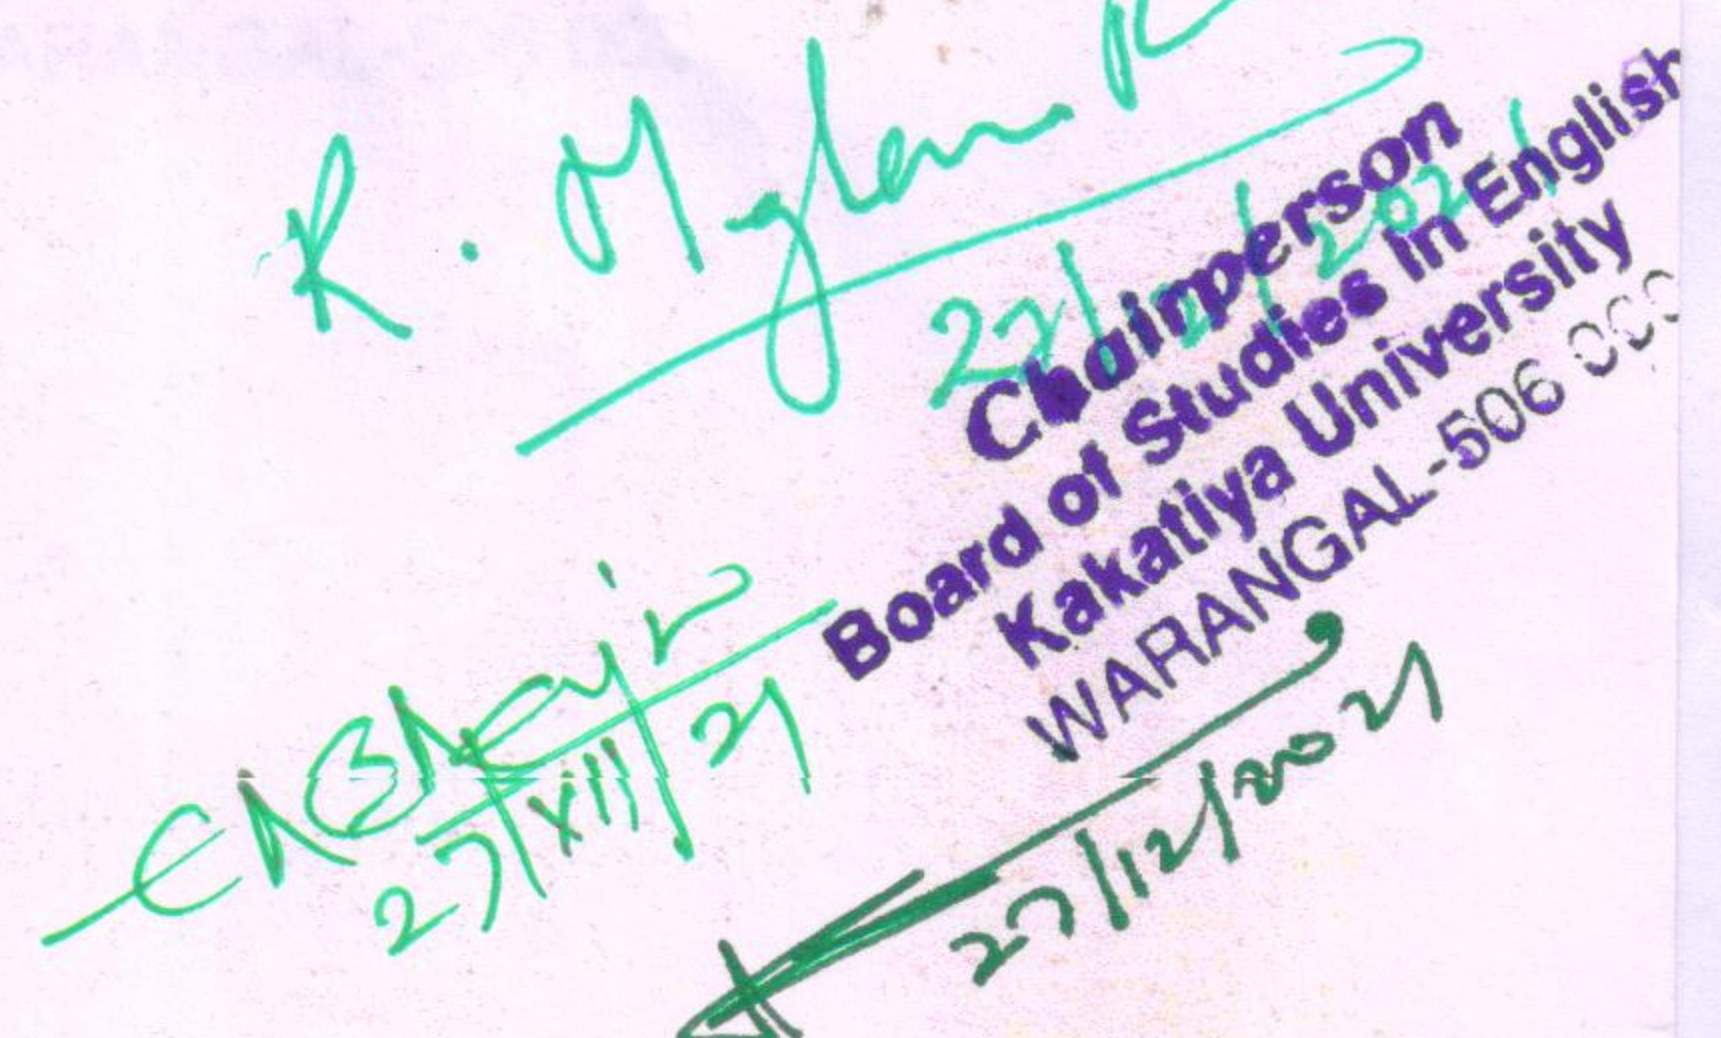 R.
27/12/2021
Chairperson
Board of Studies in English
Kakatiya University
WARANGAL-506 00
27/XII/21
27/12/2021